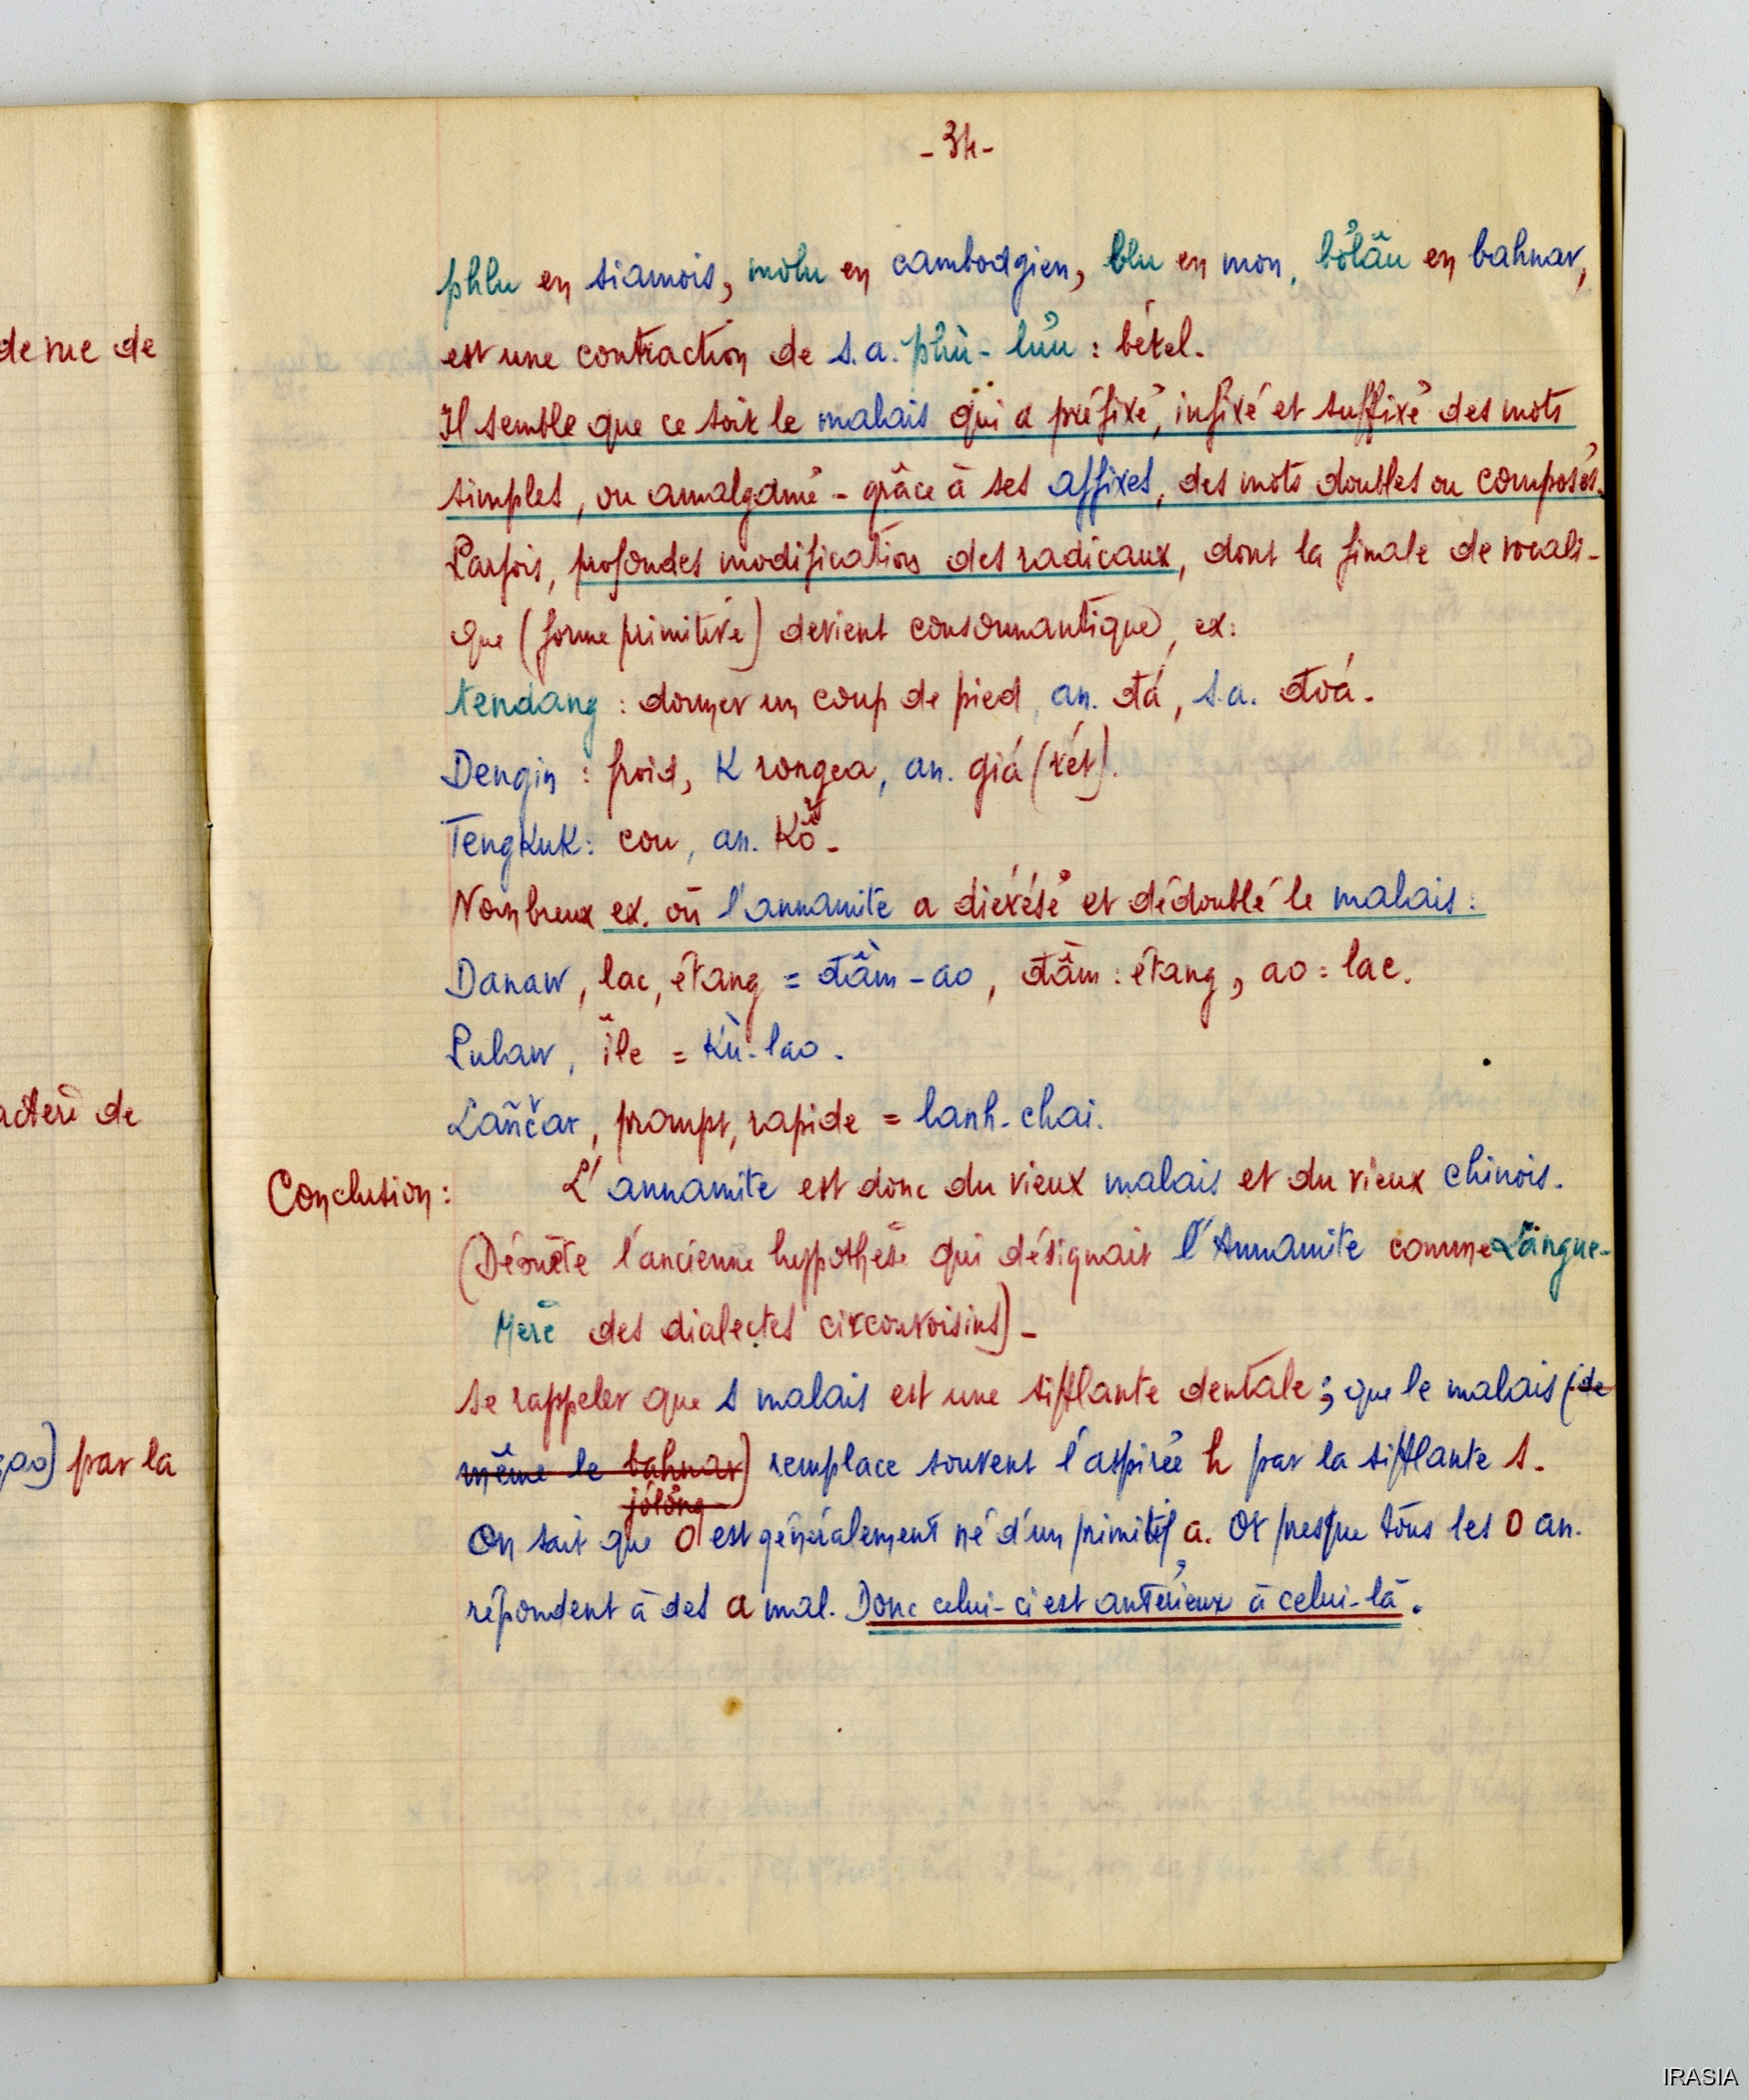 - 34 -
phlu en siamois, molu en cambodgien, blu en mon, bơlâu en bahnar,
est une contraction de s.a. phù-lưu : bétel.
Il semble que ce soit le malais qui a préfixé, infixé et suffixé des mots
simples, ou amalgamé - grâce à ses affixes, des mots doubles ou composés.
Parfois, profondes modifications des radicaux, dont la finale de vocali-
que (forme primitive) devient consonnantique, ex:
tendang : donner un coup de pied, an. đá, s.a. đoá.
Dengin : froid, K rongea, an. giá (rét).
TengKuK : cou, an. Kổ -
Nombreux ex. où l'annamite a diérésé et dédoublé le malais :
Danaw, lac, étang = đầm-ao, đầm : étang, ao = lac.
Pulaw, île = Kù-lao.
Lañčar, prompt, rapide = lanh-chai.
Conclusion : L'annamite est donc du vieux malais et du vieux chinois.
(Démète l'ancienne hypothèse qui désignait l'Annamite comme Langue-
Mère des dialectes circonvoisins) -
se rappeler que s malais est une sifflante dentale ; que le malais (de
même le bahnar) remplace souvent l'aspirée h par la sifflante s.
jơlơng
On sait que O est généralement né d'un primitif a. Or presque tous les O an.
répondent à des a mal. Donc celui-ci est antérieux à celui-là.
de vue de
actère de
gao) par la
IRASIA